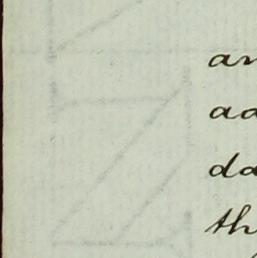 an
aa
da
th